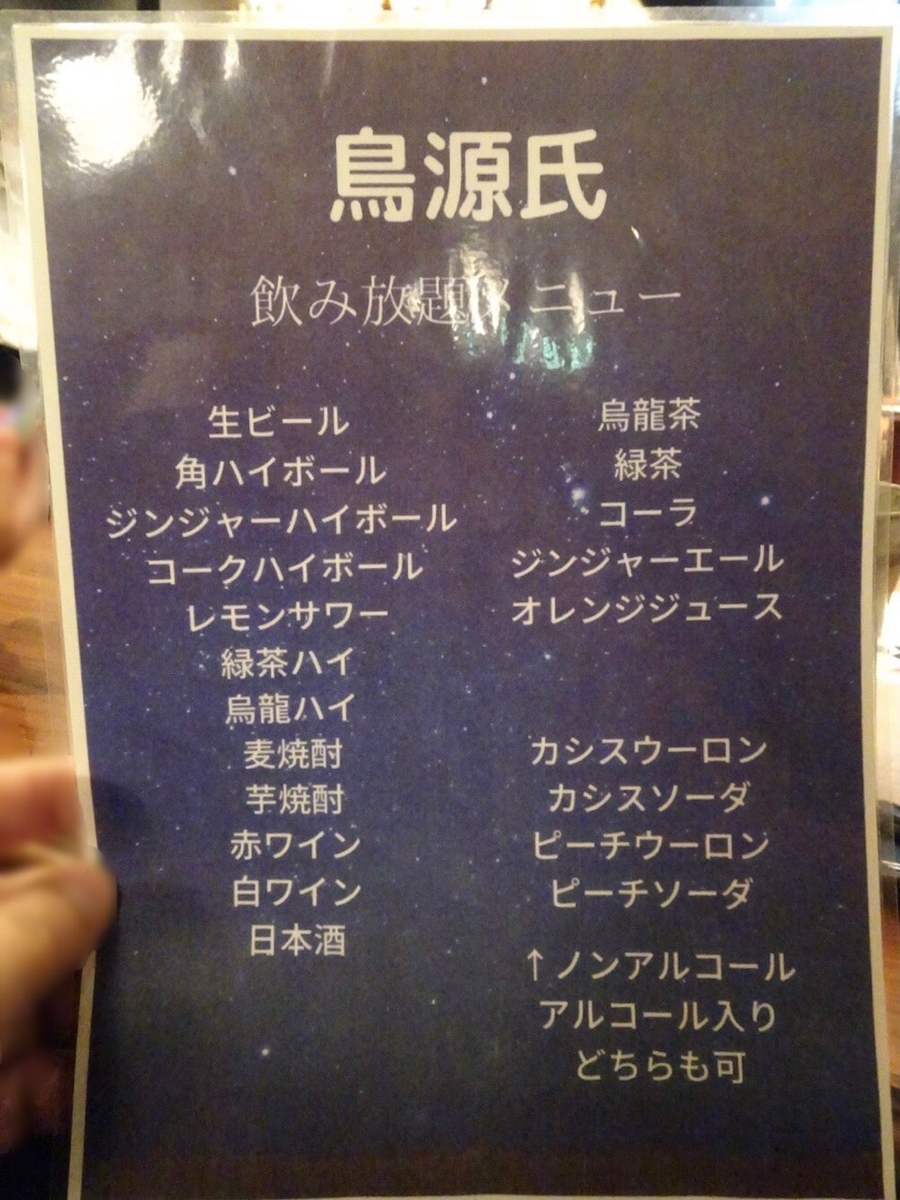 鳥源氏
飲み放題メニュー
生ビール
角ハイボール
ジンジャーハイボール
コークハイボール
レモンサワー
緑茶ハイ
烏龍ハイ
麦焼酎
芋焼酎
赤ワイン
白ワイン
日本酒
烏龍茶
緑茶
コーラ
ジンジャーエール
オレンジジュース
カシスウーロン
カシスソーダ
ピーチウーロン
ピーチソーダ
↑ノンアルコール
アルコール入り
どちらも可